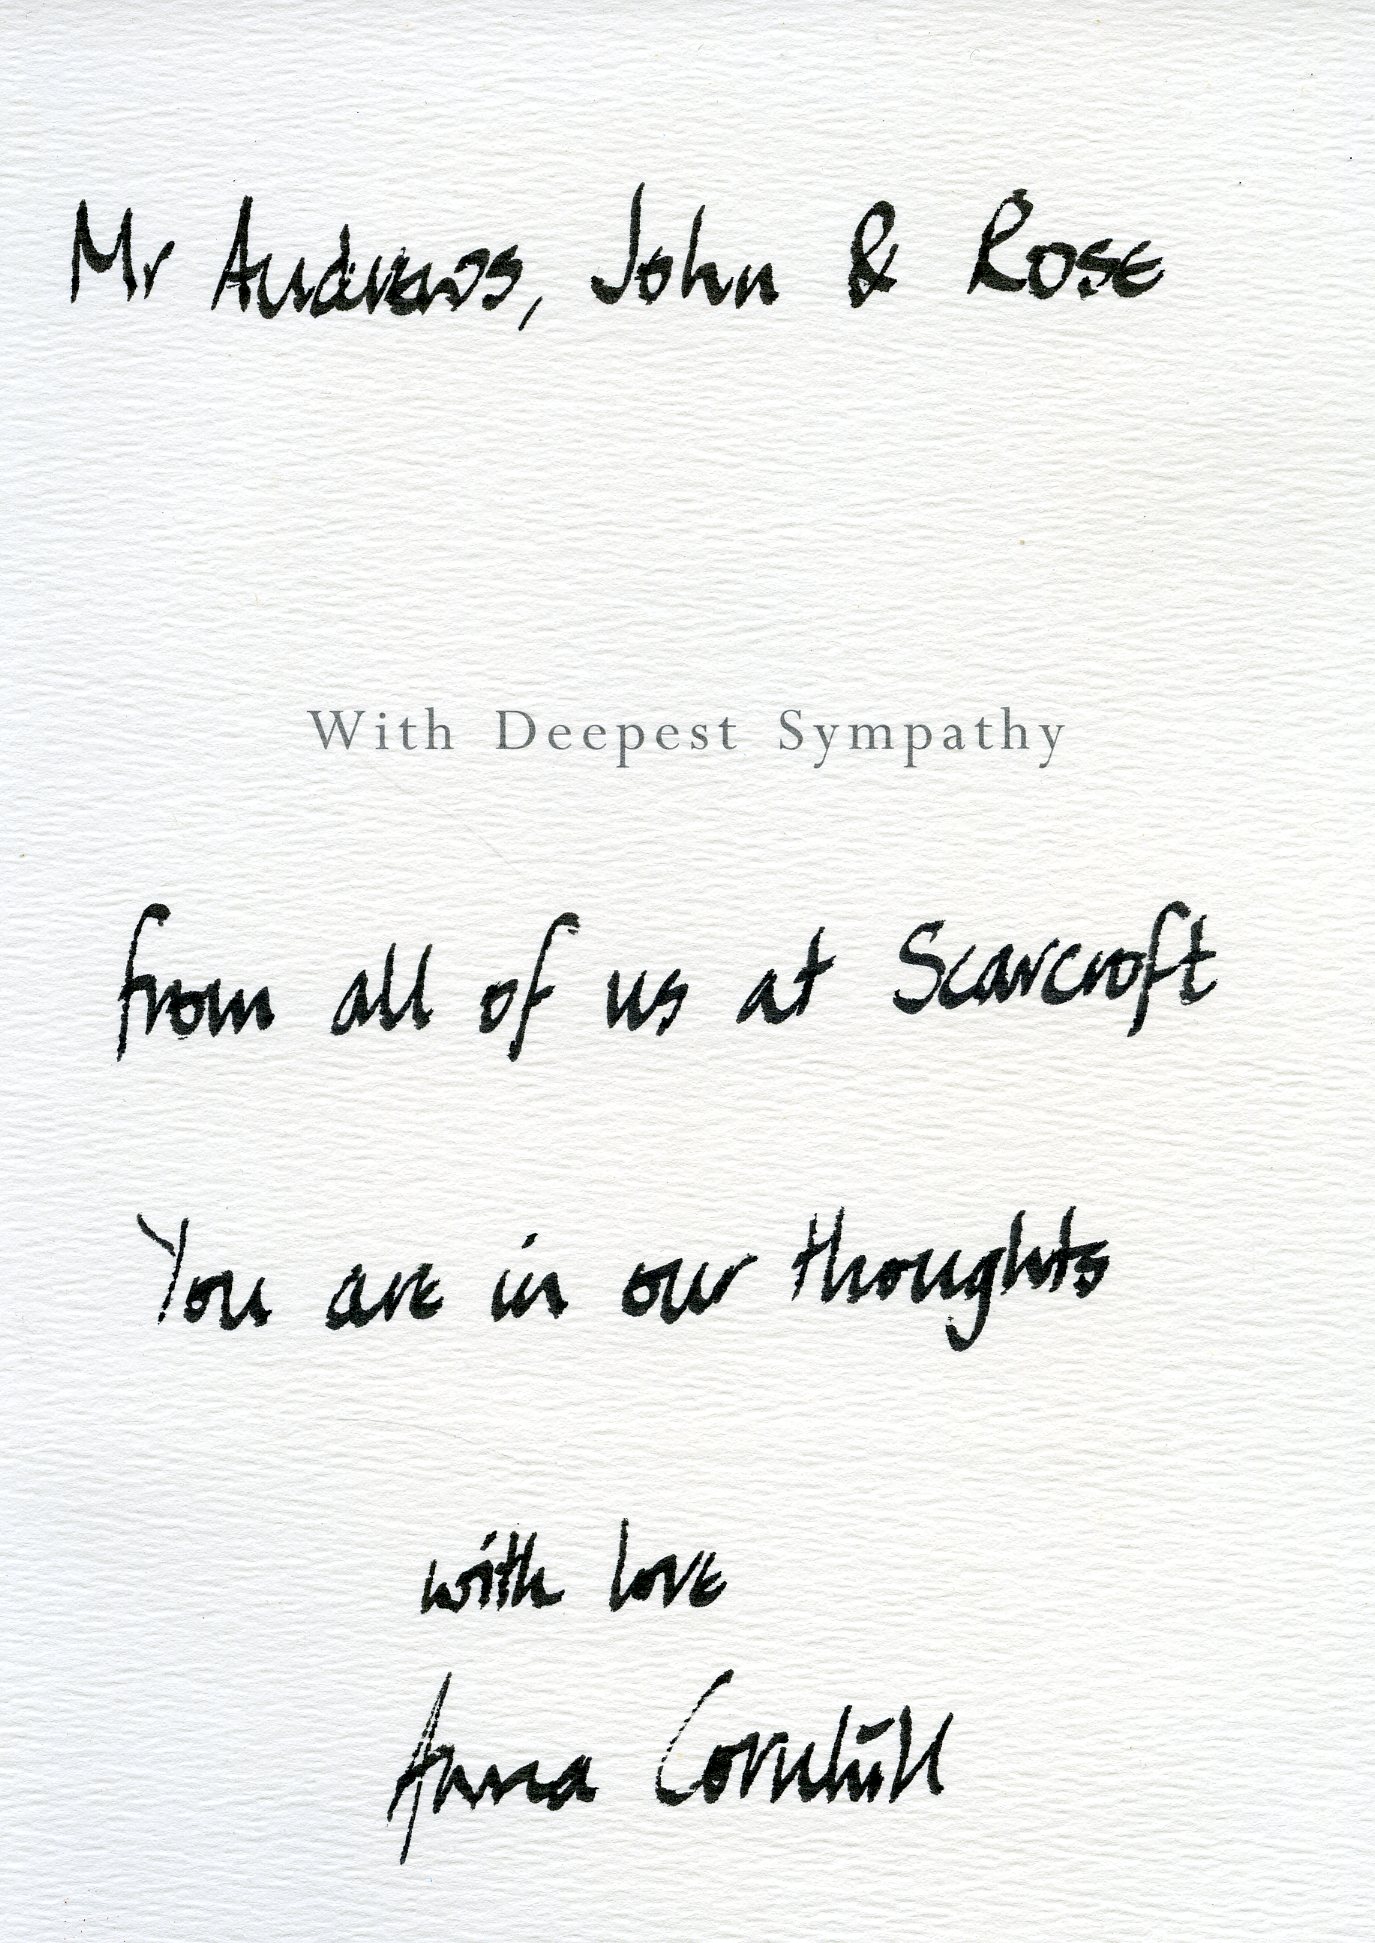 Mr Andrews, John & Rose
With Deepest Sympathy
from all of us at Scarcroft
You are in our thoughts
with love
Anna Cornhill